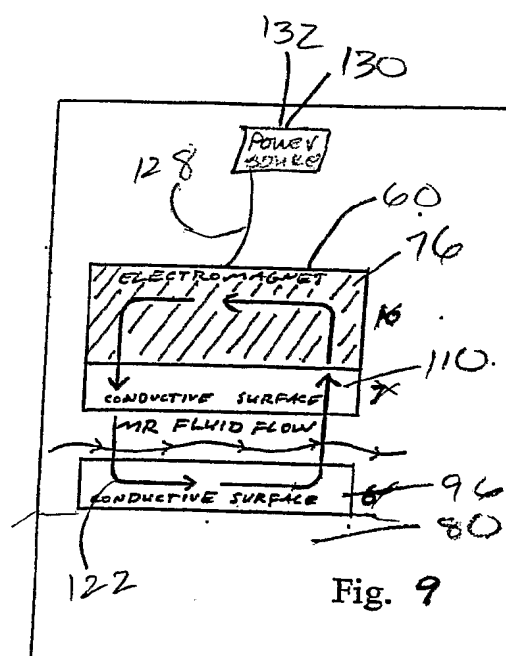 132
130
POWER
SOURCE
128
60
ELECTROMAGNET
76
110
CONDUCTIVE SURFACE
MR FLUID FLOW
CONDUCTIVE SURFACE
96
80
122
Fig. 9